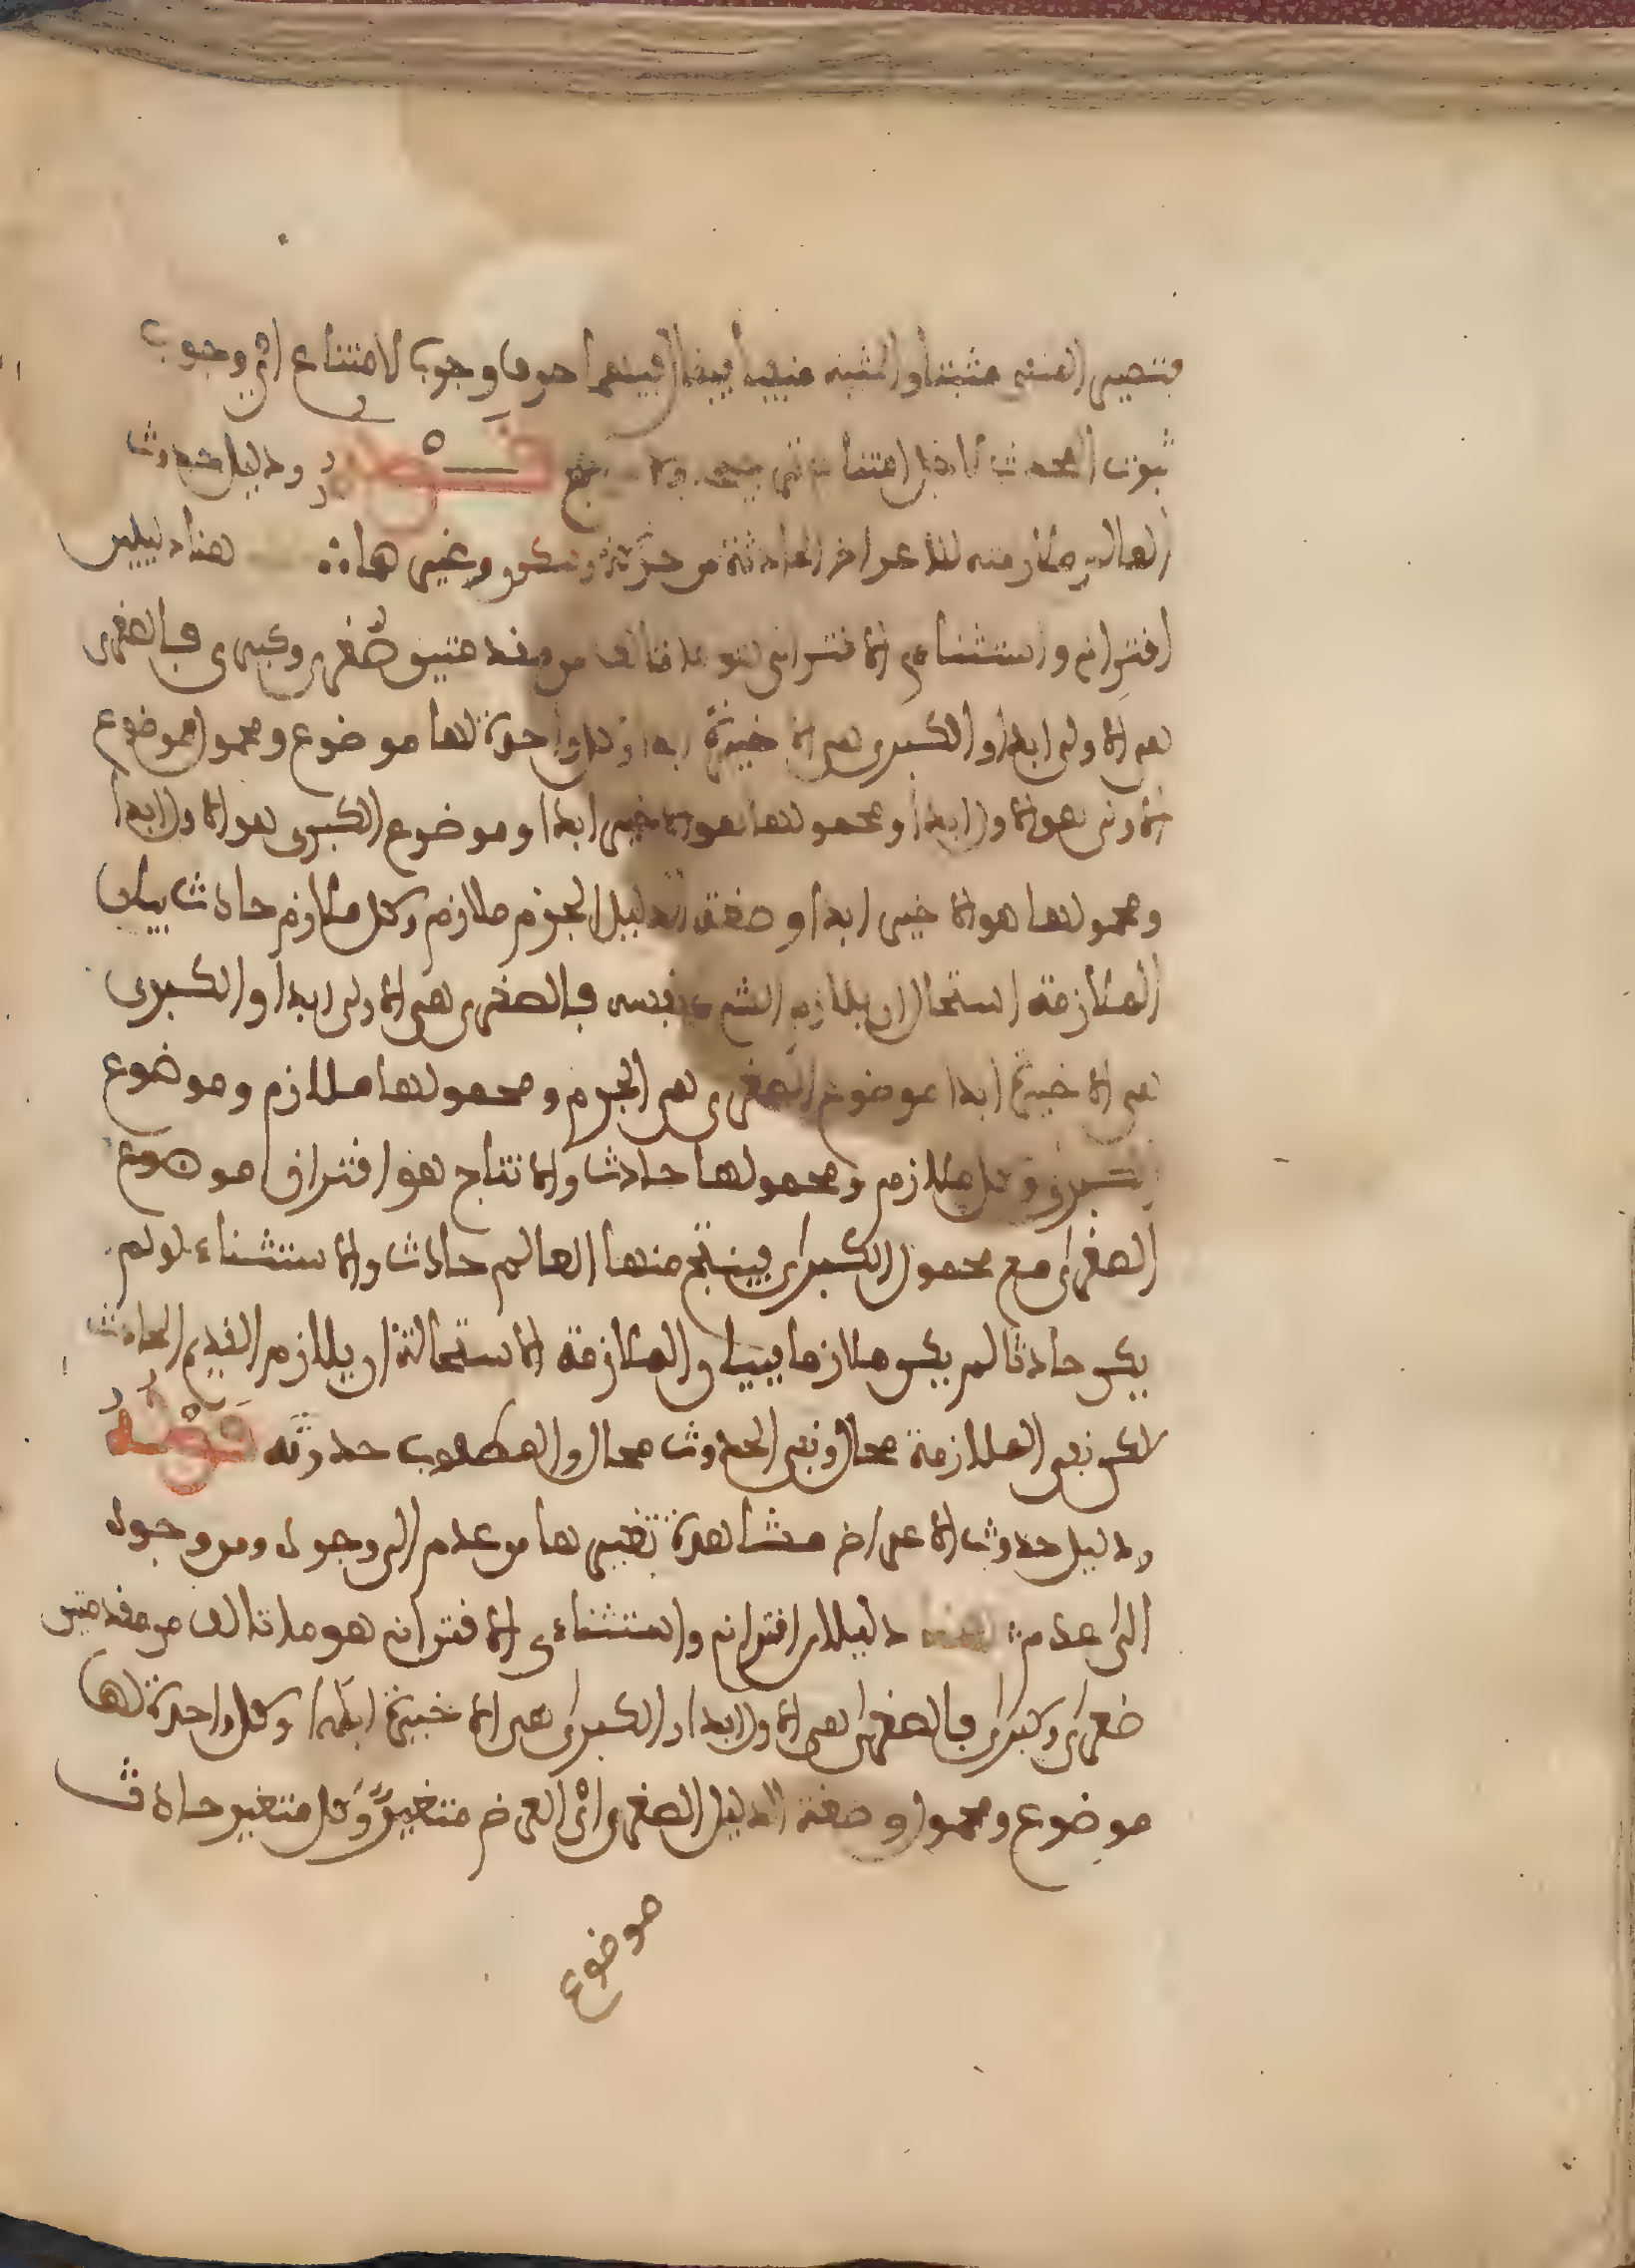 فتصير المنفي مثبتا والمثبت منفيا فيقال فيهما حرفا وجوب لامتناع اي وجوب
ثبوت الحدث لاجل امتناع فصل ودليل حدوث
العالم ملازمته للاعراض الحادثة من حركة وسكون وغيرها هنا دليلين
اقتراني واستثناءي الاقتراني هو ما تالف من مقدمتين صغرى وكبرى فالصغرى
هي الاولى ابدا والكبرى هي الاخيرة ابدا وكل واحدة لها موضوع ومحمول فموضوع
الاولى هو الاول ابدا ومحمولها هو الاخير ابدا وموضوع الكبرى هو الاول ابدا
ومحمولها هو الاخير ابدا وصفة الدليل الجرم ملازم وكل ملازم حادث بيان
الملازمة استحال ان يلازم الشيء نفسه فالصغرى هي الاولى ابدا والكبرى
هي الاخيرة ابدا موضوع الصغرى هي الجرم ومحمولها ملازم وموضوع
الكبرى وكل ملازم ومحمولها حادث والانتاج هو اقتران موضوع
الصغرى مع محمول الكبرى فينتج منها العالم حادث والاستثناء لو لم
يكن حادثا لم يكن ملازما بيان الملازمة الاستحالة ان يلازم القديم الحادث
لاكن نفي الملازمة محال ونفي الحدوث محال والمطلوب حدوثه فصل
ودليل حدوث الاعراض مشاهدة تغييرها من عدم الى وجود ومن وجود
الى عدم هنا دليلان اقتراني واستثناءي الاقتراني هو ما تالف من مقدمتين
صغرى وكبرى فالصغرى هي الاولى ابدا والكبرى هي الاخيرة ابدا وكل واحدة لها
موضوع ومحمول وصفة الدليل الصغرى اي العرض متغير وكل متغير حادث
موضوع